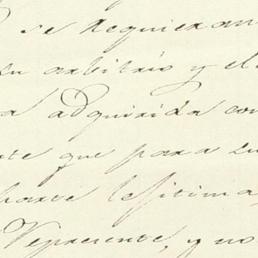 se requieran
su arbitrio y el
adquirida con
que para su
parte lesitima
Represente, y no